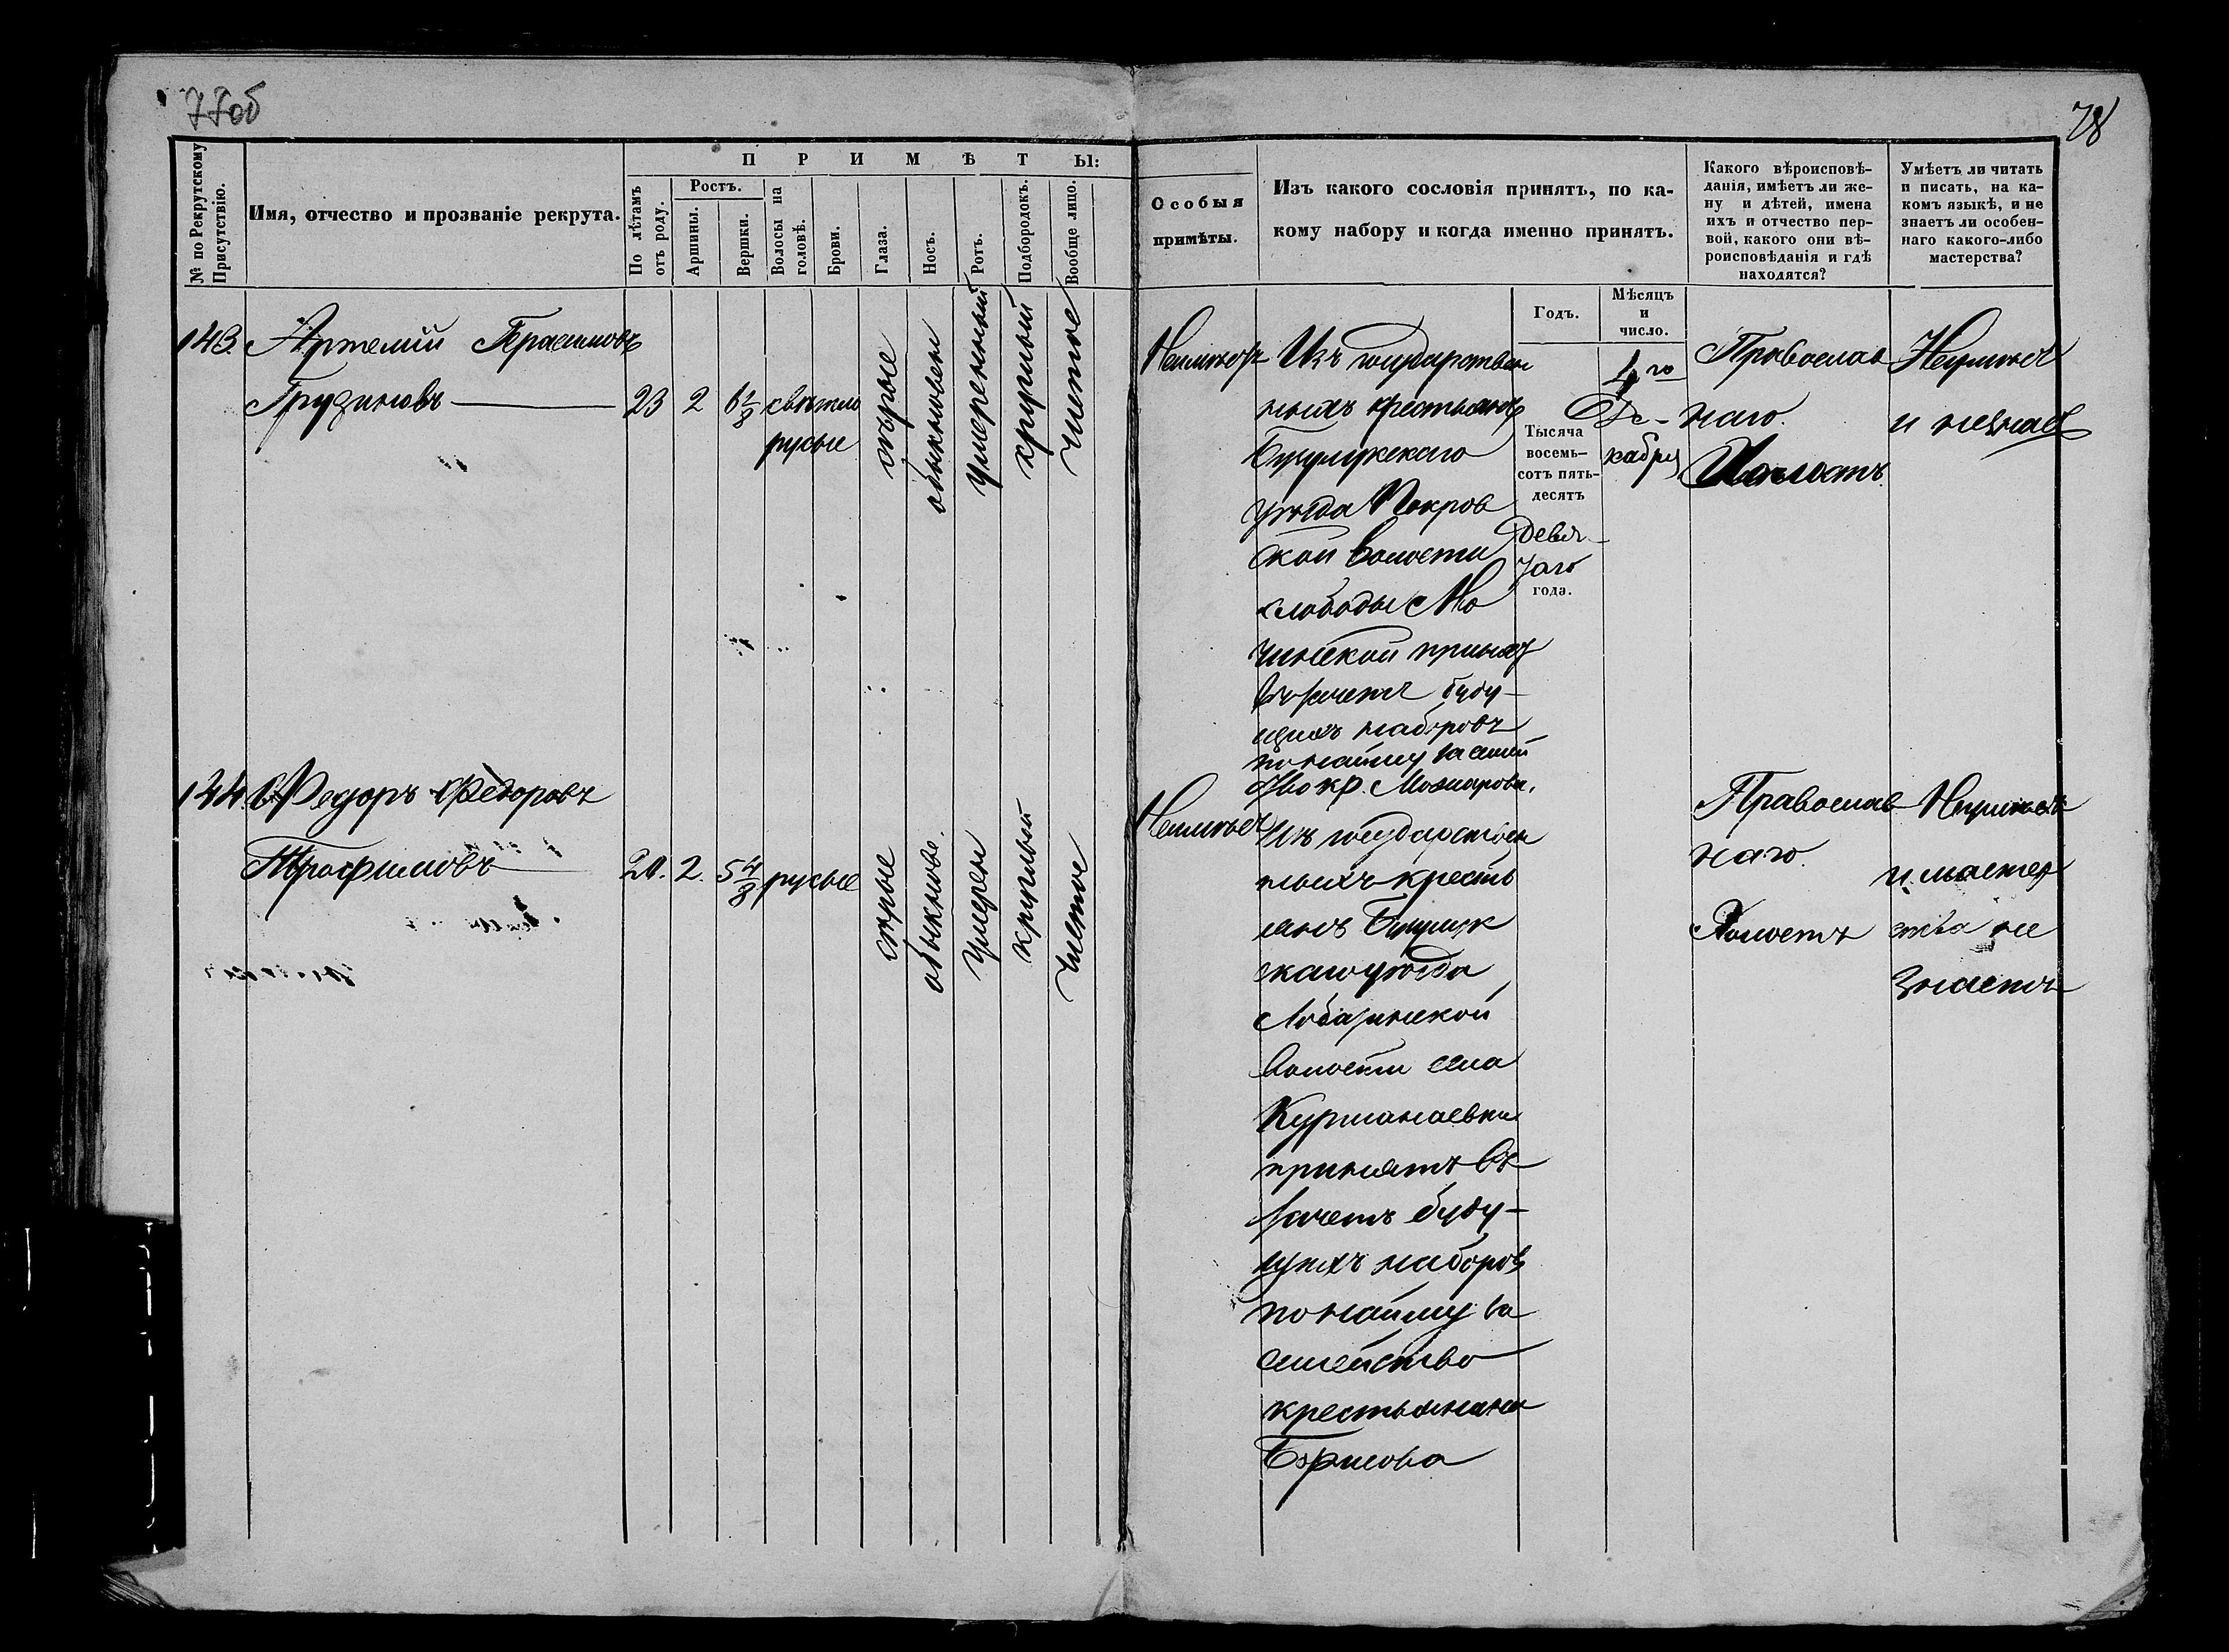 77об
78
№ по Рекрутскому Присутствію.
Имя, отчество и прозваніе рекрута.
ПРИМѢТЫ:
По лѣтамъ отъ роду.
Ростъ.
Аршины.
Вершки.
Волосы на головѣ.
Брови.
Глаза.
Носъ.
Ротъ.
Подбородокъ.
Вообще лицо.
Особыя
примѣты.
Изъ какого сословія принятъ, по ка-
кому набору и когда именно принятъ.
Какого вѣроисповѣ-
данія, имѣетъ ли же-
ну и дѣтей, имена
ихъ и отчество пер-
вой, какого они вѣ-
роисповѣданія и гдѣ
находятся?
Умѣетъ ли читать
и писать, на ка-
комъ языкѣ, и не
знаетъ ли особен-
наго какого-либо
мастерства?
Годъ.
Мѣсяцъ
и
число.
143. Артемій Герасимовъ
Грудиновъ
23 2 6 1/8 свѣтло
русые
сѣрые
обыкновен
умеренный
круглый
чистое
Неимѣетъ
Изъ государствен
ныхъ крестьянъ
Бузулукскаго
уѣзда Покров
ской волости
слободы
принятъ
въ зачетъ буду-
щихъ наборовъ
по найму за семей
Тысяча
восемь-
сотъ пять-
десятъ
Девя-
таго
года.
Де-
кабря
Православ
наго.
Холостъ
Неумѣетъ
и незнаетъ
144. Федоръ Федоровъ
Трофимовъ
21. 2. 5 4/8 русые
сѣрые
обыкнове.
умерен
круглый
чистое
Неимѣетъ
Изъ государствен
ныхъ кресть
янъ Бузулук
скаго уѣзда
Лобазинской
волости села
Курманаевки
принятъ въ
зачетъ буду-
щихъ наборовъ
по найму за
семейство
крестьянина
Борисова
Православ
наго.
Холостъ
Неумѣетъ
и мастер
ства не
знаетъ